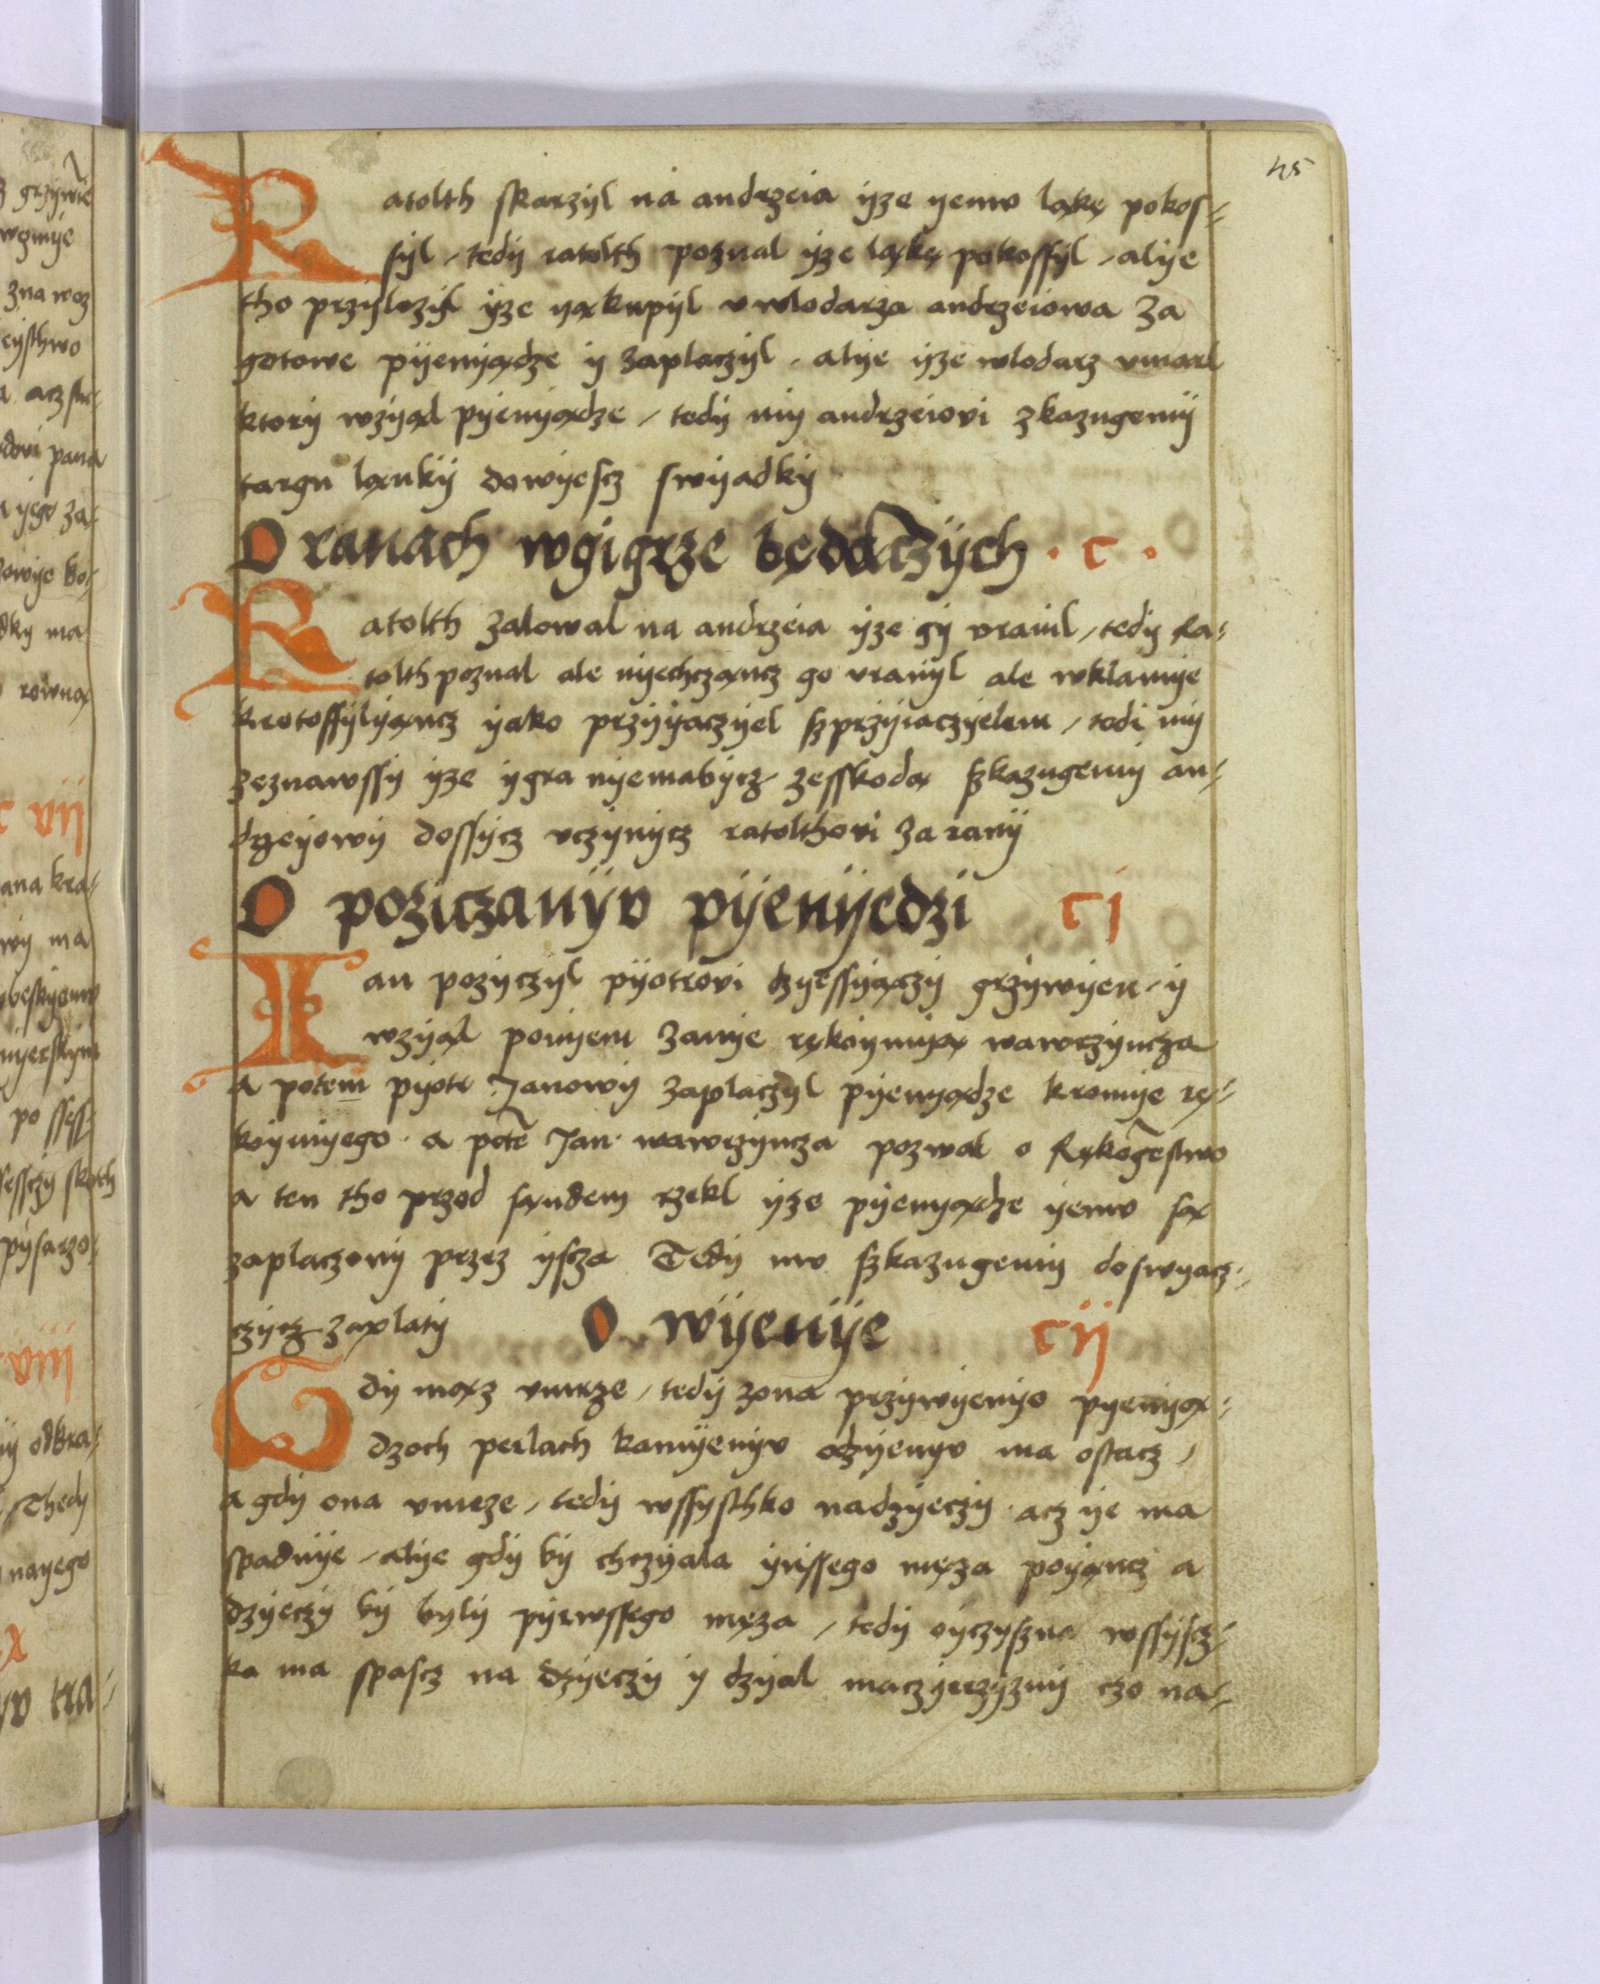 45
Ratolth skarzyl na andrzeia yze yemv ląkę pokos-
syl, tedy ratolth poznal yze ląkę pokossyl, alye
tho przylozyl yze yą kupyl v wlodarza andrzeiowa za
gotowe pyenyądze y zaplaczyl, alye yze wlodarz vmarl
ktory wzyąl pyenyądze, tedy my andrzeiovi zkazugemy
targu ląnky dowyescz swyadky
O ranach w gigrze będączych · c ·
Ratolth zalowal na andrzeia yze gy vranil, tedy Ra-
tolth poznal ale nyechcząncz go vranyl ale wklamye
krotossylyąncz yako przyyaczyel szprzyiaczyelem, tedi my
zeznawssy yze ygra nyema bycz zesskodą szkazugemy an-
drzeyowy dossycz vczynycz ratolthovi za rany
O poziczanyv pyenyędzi ci
Ian pozyczyl pyotrovi dzyessyączy grzywyen, y
wzyąl ponyem zanye rękoymyą wawrzyncza
a potem pyotr Janowy zaplaczyl pyenyądze kromye rę-
koymyego · a potē Jan wawrzyncza pozwal o Rękogēstwo
a ten tho przed sąndem rzekl yze pyenyądze yemv są
zaplaczony przez yscza Tedy mv szkazugemy doswyacz-
czycz zaplaty O wyenye cij
Gdy mąz vmrze, tedy zona przywyenye pyenyą-
dzoch perlach kamyenyv odzyenyv ma ostacz,
a gdy ona vmrze, tedy wssysthko na dzyeczy acz ye ma
spadnye, alye gdy by chczyala ynssego męza poyąncz a
dzyeczy by byly pyrwssego męza, tedy oyczyszna wssysz-
ka ma spascz na dzyeczy y dzyal maczyerzyzny czo na-